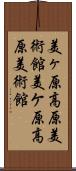 美ケ原高原美
術館美ケ原高
原美術館